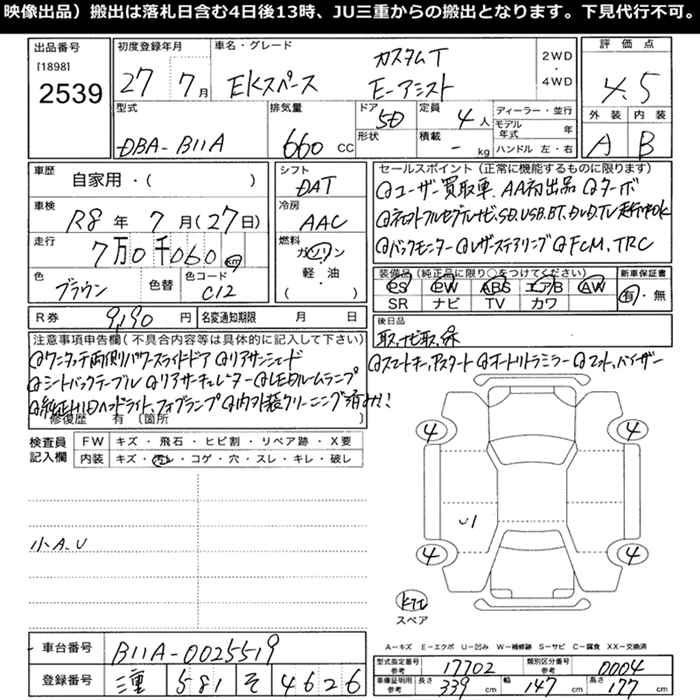 映像出品）搬出は落札日含む4日後13時、JU三重からの搬出となります。下見代行不可。
出品番号
[1898]
2539
初度登録年月
27年 7月
車名・グレード
EKスペース カスタムT E-アシスト
2WD
4WD
評価点
4.5
外装 内装
A B
型式
DBA-B11A
排気量
660 CC
ドア
5D
形状
定員
4人
積載
- kg
ディーラー・並行
モデル年式 年
ハンドル 左・右
車歴
自家用・( )
車検
R8年 7月(27日)
走行
7万0千060 km
色
ブラウン
色替
色コード
C12
シフト
DAT
冷房
AAC
燃料
ガソリン
軽・油
( )
R券 9,190円
名変通知期限 月 日
セールスポイント (正常に機能するものに限ります)
◎ユーザー買取車、AA初出品 ◎ターボ
◎ナビ,フルセグTV,SD,USB,BT,DVD,TV走行中OK
◎バックモニター ◎レザーステアリング ◎FCM,TRC
装備品 (純正品に限り○をつけてください)
PS PW ABS エアB AW
SR ナビ TV カワ
新車保証書
有・無
後日品
取,ナビ取,保
注意事項申告欄(不具合内容等は具体的に記入して下さい)
◎ワンタッチ両側パワースライドドア ◎リアサンシェード
◎スマートキー,Pスタート ◎オートリトラミラー ◎マット,バイザー
◎シートバックテーブル ◎リアサーキュレーター ◎LEDルームランプ
◎純正HIDヘッドライト,フォグランプ ◎内外装クリーニング済み!!
修復歴 有 (箇所 )
検査員記入欄
FW キズ・飛石・ヒビ割・リペア跡・X要
内装 キズ・汚レ・コゲ・穴・スレ・キレ・破レ
小A.U
4 4
U1
4 4
スペア
A－キズ E－エクボ U－凹み W－補修跡 S－サビ C－腐食 XX－交換済
車台番号 B11A-0025519
登録番号 三重 581 そ 4626
型式指定番号 参考 17702
類別区分番号 参考 0004
車庫証明用 参考 長さ 339 cm 幅 147 cm 高さ 177 cm